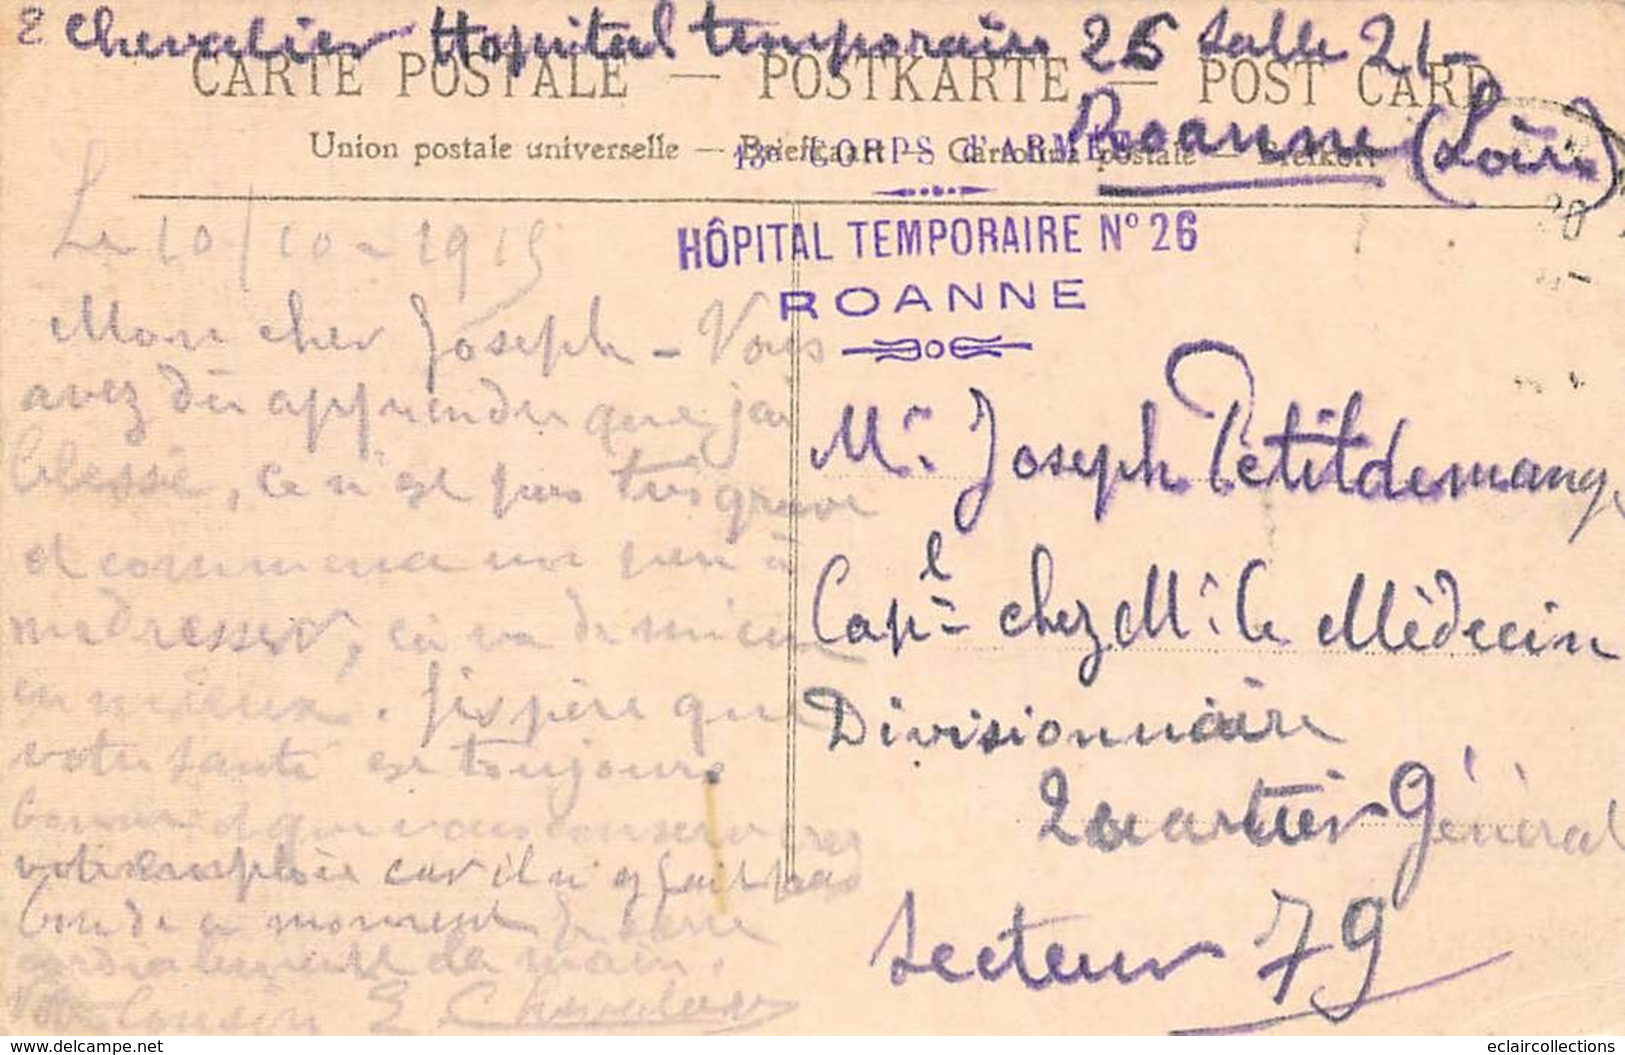 E Chevalier Hopital temporaire 26 salle 21-
CARTE POSTALE — POSTKARTE — POST CARD
Roanne (Loire)
Union postale universelle — Briefkaart — Cartolina postale —
13e CORPS d'ARMÉE
HÔPITAL TEMPORAIRE N° 26
ROANNE
Le 10/10-1915
Mon cher Joseph - Vous
avez dû apprendre que j'ai
blessé, ce n'est pas très grave
et commence un peu à
me dresser, ça va de mieux
en mieux. J'espère que
votre santé est toujours
bonne et que vous conserverez
votre emploie car il n'y fait pas
bon de ce moment je serre
cordialement la main.
Votre Cousin E Chevalier
Mr. Joseph Petitdemange
Capl chez Mr. le Médecin
Divisionnaire
Quartier Général
Secteur 79
www.delcampe.net
eclaircollections